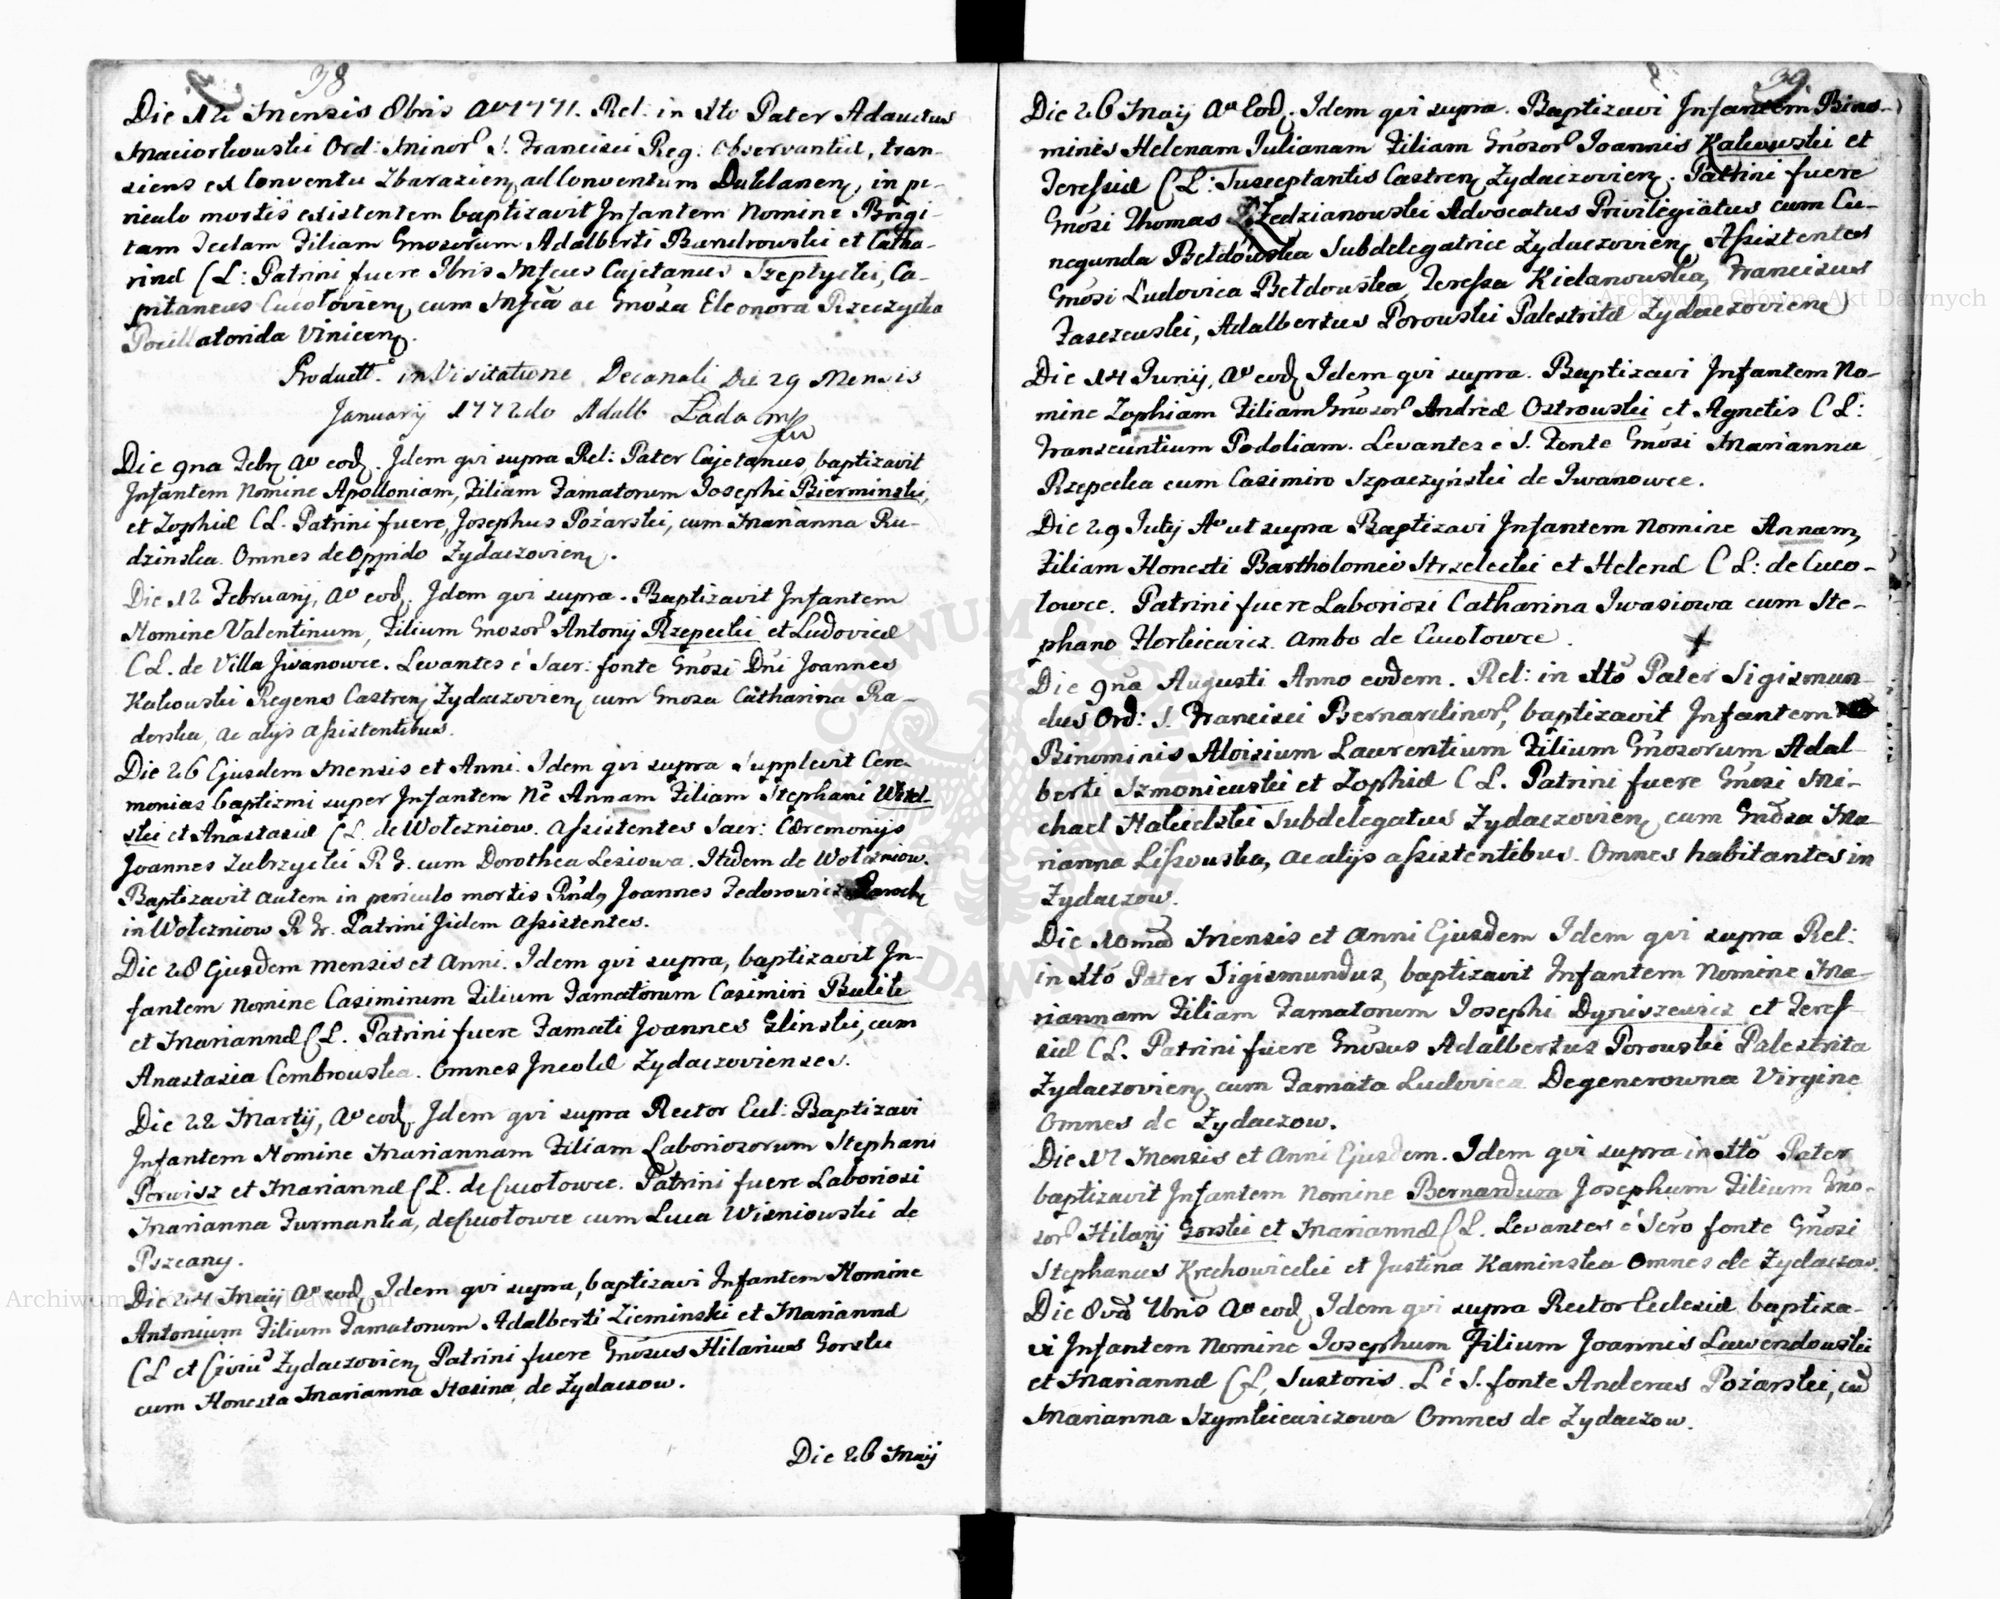 38
Die 12 Mensis 8bris Ao 1771. Rel: in Xto Pater Adauctus
Maciorkowski Ord: Minor: S. Francisci Reg: Observantiæ, tran-
siens ex Conventu Zbarazien, ad Conventum Dublanen, in pe-
riculo mortis existentem baptizavit Infantem Nomine Brigi-
tam Teclam Filiam Gnosorum Adalberti Bandrowski et Catha-
rinæ CL: Patrini fuere Illris Mfcus Cajetanus Szeptycki, Ca-
pitaneus Cucołovien, cum Mfca ac Gnosa Eleonora Rzeczycka
Pocillatorida Vinicen.
Product. in Visitatione Decanali Die 29 Mensis
Januarij 1772do Adalb Lada mp
Die 9na Febr Ao eod. Idem qvi supra Rel: Pater Cajetanus, baptizavit
Infantem Nomine Apolloniam, Filiam Famatorum Josephi Bierminski,
et Zophiæ CL. Patrini fuere, Josephus Pożarski, cum Marianna Ru-
dzinska. Omnes de Oppido Zydaczovien.
Die 12 Februarij, Ao eod. Idem qvi supra. Baptizavit Infantem
Nomine Valentinum, Filium Gnosor Antonij Rzepecki et Ludovicæ
CL. de Villa Jwanowce. Levantes é Sacr: fonte Gnosi Dni Joannes
Kakowski Regens Castren Zydaczovien, cum Gnosa Catharina Ra-
dorska, ac alijs assistentibus.
Die 26 Ejusdem Mensis et Anni. Idem qvi supra Supplevit Cere-
monias baptizmi super Infantem Ne Annam Filiam Stephani Witel-
ski et Anastasiæ CL. de Wołczniow. Assistentes Sacr: Cæremonijs
Joannes Zubrzycki R G. cum Dorothea Lesiowa. Itidem de Wołczniow.
Baptizavit autem in periculo mortis Rndo Joannes Fedorowicz Paroch
in Wołczniow R G. Patrini Jidem Assistentes.
Die 28 Ejusdem mensis et Anni. Idem qvi supra, baptizavit In-
fantem Nomine Casimirum Filium Famatorum Casimiri Bulik
et Mariannæ CL. Patrini fuere Famati Joannes Glinski, cum
Anastasia Cembrowska. Omnes Incolæ Zydaczovienses.
Die 22 Martij, Ao eod. Idem qvi supra Rector Eccl: Baptizavi
Infantem Nomine Mariannam Filiam Laboriosorum Stephani
Perwisz et Mariannæ CL. de Cucołowce. Patrini fuere Laboriosi
Marianna Furmanka, de Cucołowce cum Luca Wisniowski de
Pszeany.
Die 24 Maij Ao eod, Idem qvi supra, baptizavi Infantem Nomine
Antonium Filium Famatorum Adalberti Zieminski et Mariannæ
CL et Civiu Zydaczovien Patrini fuere Gnosus Hilarius Gorski
cum Honesta Marianna Stasina de Zydaczow.
Die 26 Maij
39.
Die 26 Maij Ao Eod. Idem qvi supra. Baptizavi Infantem Bino-
minis Helenam Julianam Filiam Gnosor Joannis Kakowski et
Teressiæ CL: Susceptantis Castren Zydaczovien. Patrini fuere
Gnosi Thomas Rzedzianowski Advocatus Privilegiatus cum Cu-
negunda Bełdowska Subdelegatrice Zydaczovien Assistentes
Gnosi Ludovica Bełdowska, Teressa Kielanowska, Franciscus
Zaszczewski, Adalbertus Porowski Palestritæ Zydaczovien
Die 14 Junij, Ao eod, Idem qvi supra. Baptizavi Infantem No-
mine Zophiam Filiam Gnosor Andreæ Ostrowski et Agnetis CL:
Transeuntium Podoliam. Levantes e S. Fonte Gnosi Marianna
Rzepecka cum Casimiro Szpaczyński de Iwanowce.
Die 29 Julij Ao ut supra Baptizavi Infantem Nomine Annam,
Filiam Honesti Bartholomei Strzelecki et Helenæ CL: de Cuco-
łowce. Patrini fuere Laboriosi Catharina Iwasiowa cum Ste-
phano Horkiewicz. Ambo de Cucołowce.
Die 9na Augusti Anno eodem. Rel: in Xto Pater Sigismun-
dus Ord: S. Francisci Bernardinor, baptizavit Infantem
Binominis Aloisium Laurentium Filium Gnosorum Adal-
berti Szmoniewski et Zophiæ CL. Patrini fuere Gnosi Mi-
chael Halicki Subdelegatus Zydaczovien cum Gnosa Ma-
rianna Lissowska, ac alijs assistentibus. Omnes habitantes in
Zydaczow.
Die 10ma Mensis et Anni Ejusdem Idem qvi supra Rel:
in Xto Pater Sigismundus, baptizavit Infantem Nomine Ma-
riannam Filiam Famatorum Josephi Dyniszewicz et Teres-
siæ CL. Patrini fuere Gnosus Adalbertus Porowski Palestrita
Zydaczovien cum Famata Ludovica Degenerowna Virgine
Omnes de Zydaczow.
Die 17 Mensis et Anni Ejusdem. Idem qvi supra in Xto Pater
baptizavit Infantem Nomine Bernardum Josephum Filium Gno-
sor Hilarij Gorski et Mariannæ CL. Levantes é Scro fonte Gnosi
Stephanus Krechowiecki et Justina Kaminska Omnes de Zydaczow.
Die 8va 7bris Ao eod, Idem qvi supra Rector Ecclesiæ baptiza-
vi Infantem Nomine Josephum Filium Joannis Lewendowski
et Mariannæ CL, Sustoris. L é S. fonte Andreas Pożarski, cu
Marianna Szymkiewiczowa Omnes de Zydaczow.
Archiwum Główne Akt Dawnych